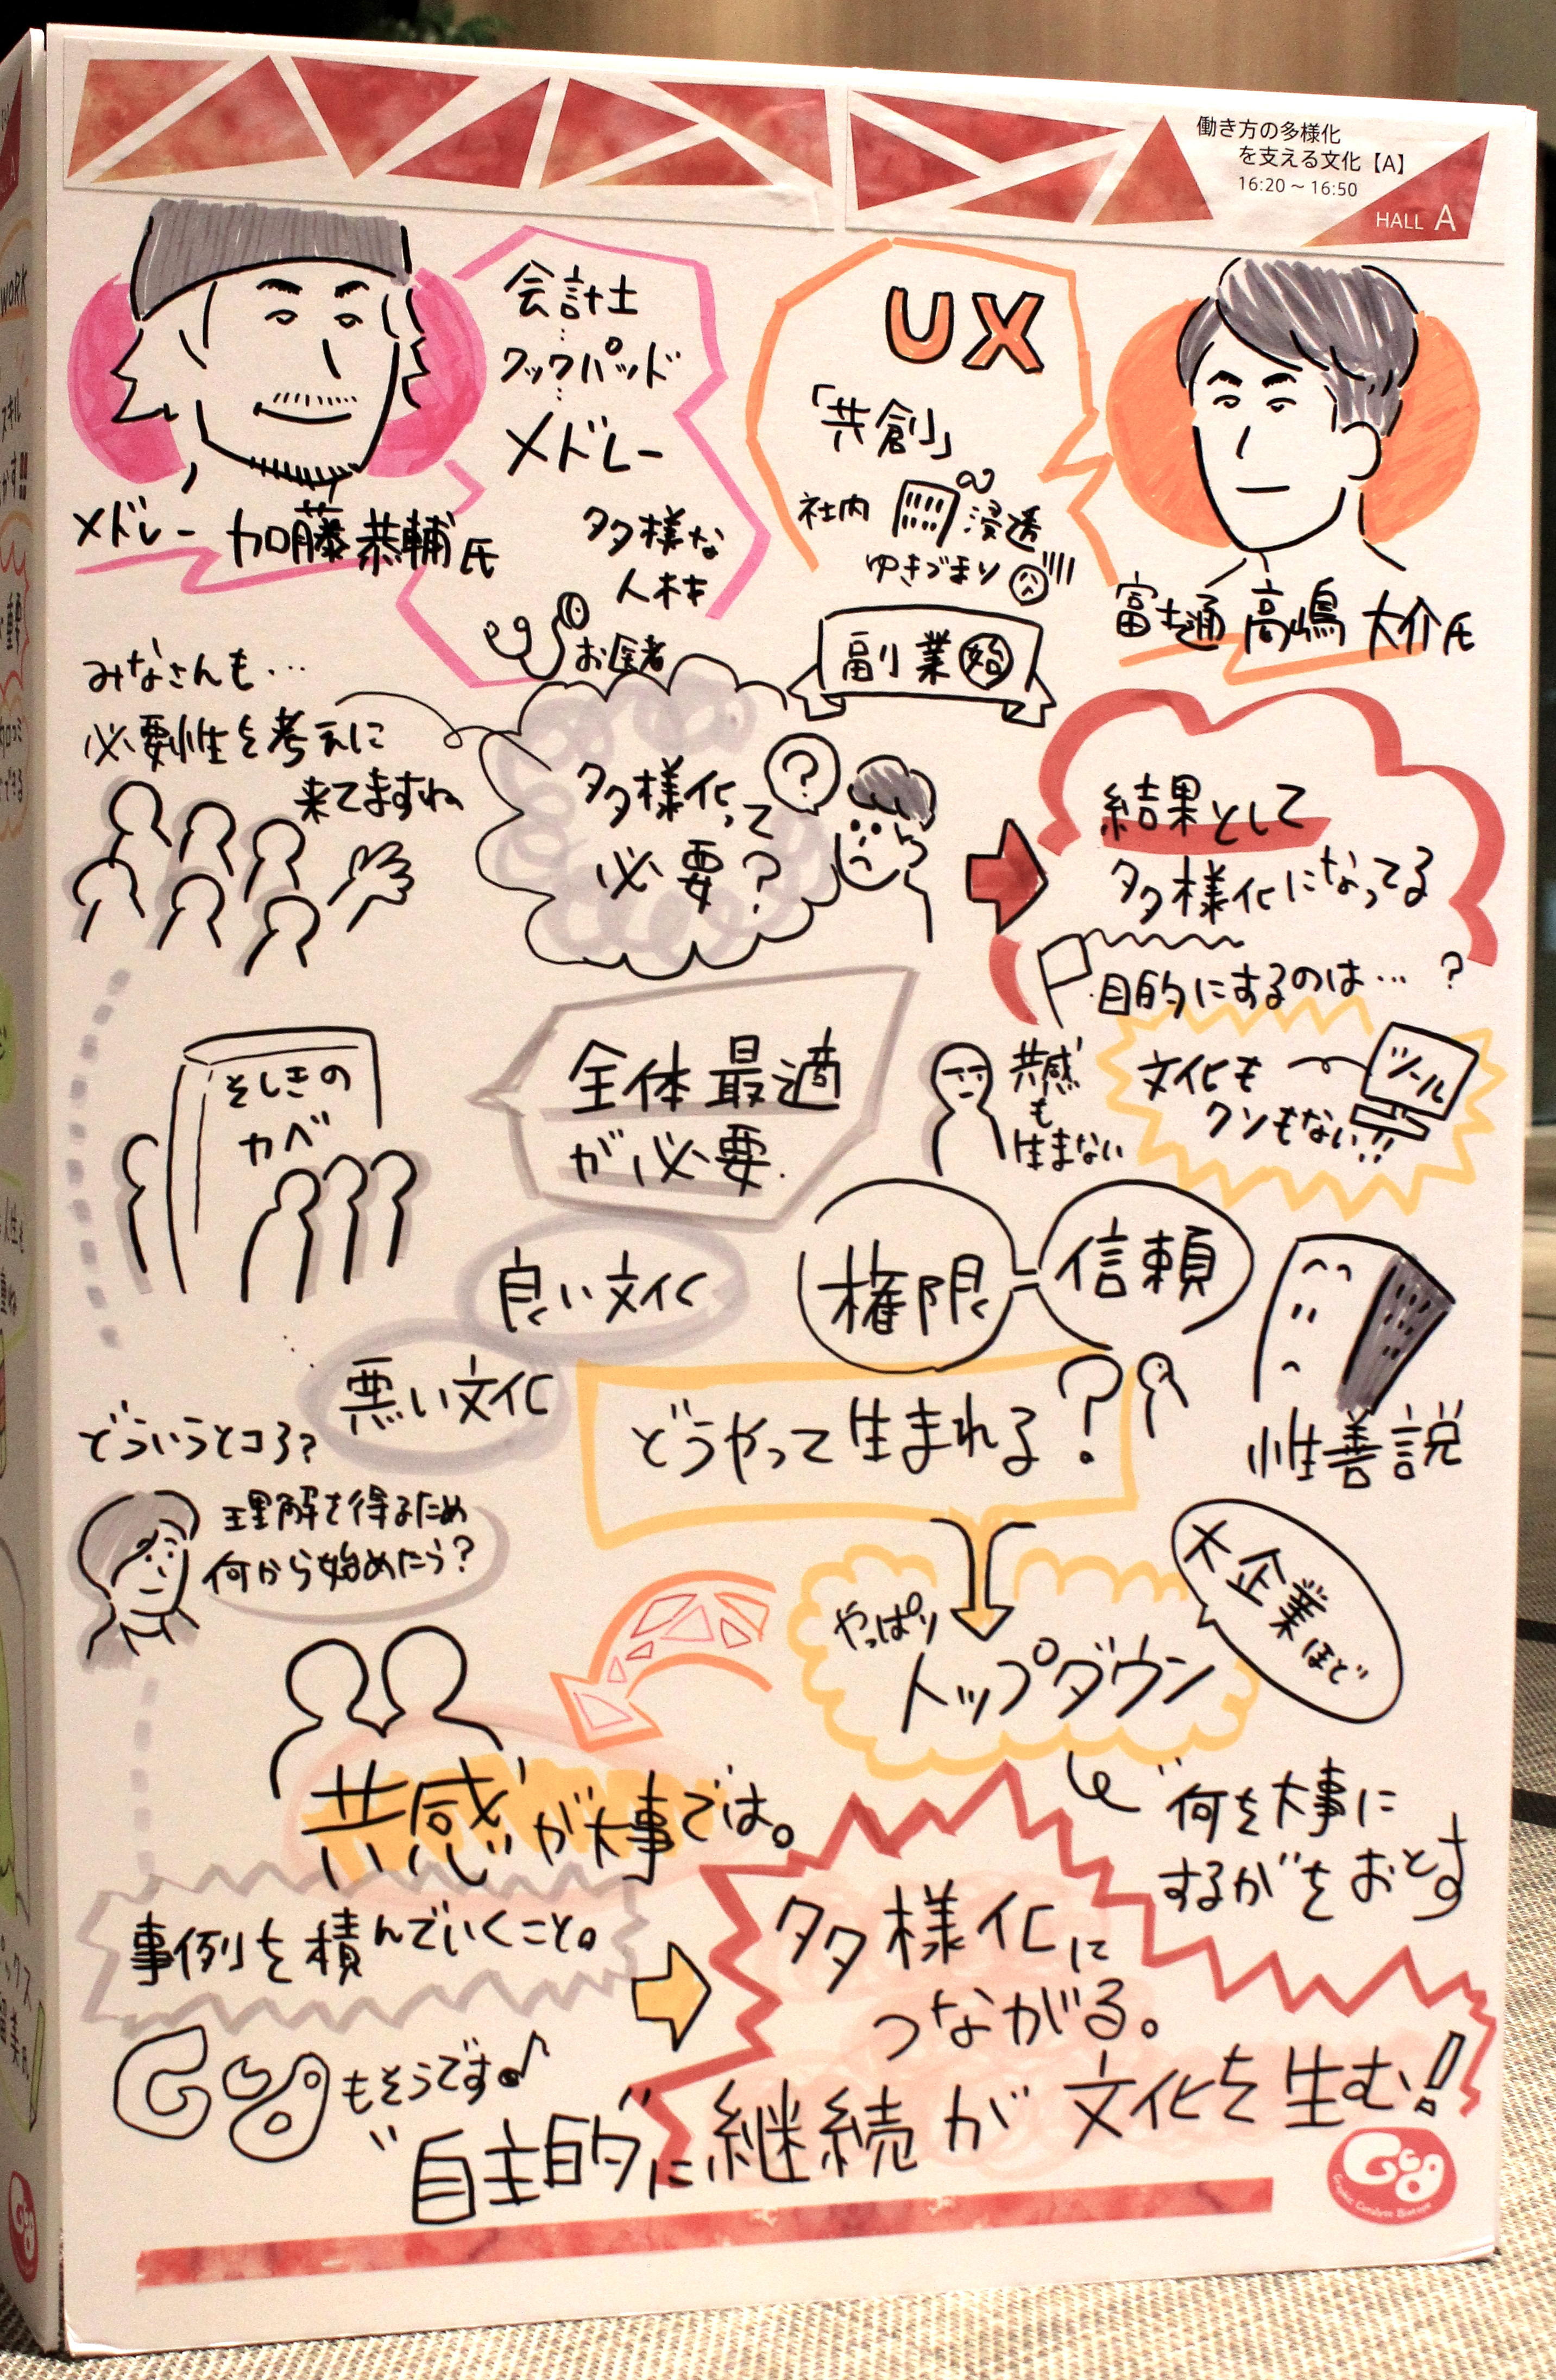 働き方の多様化
を支える文化【A】
16:20～16:50
HALL A
会計士
クックパッド
メドレー
多様な
人材
お医者
メドレー 加藤 恭輔氏
UX
「共創」
社内
浸透
ゆきづまり
富士通 高嶋 大介氏
副業 始
みなさんも…
必要性を考えに
来てますね
多様化って
必要?
?
結果として
多様化になってる
目的にするのは…?
そしきの
カベ
全体最適
が必要.
共感
も
生まない
文化も
クソもない!!
ツール
良い文化
悪い文化
権限
信頼
性善説
どういうところ?
どうやって生まれる?
理解を得るため
何から始めたらう?
やっぱり
トップダウン
大企業ほど
共感が大事では。
"何を大事に
するか"をおとす
事例を積んでいくこと。
多様化に
つながる。
もそうです♪
"自主的"に継続が文化を生む!
WORK
スキル